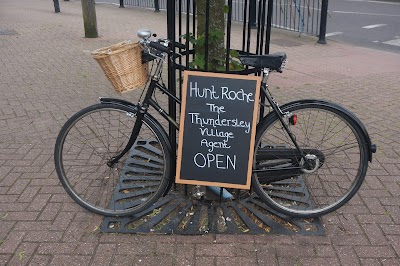 Hunt Roche
The
Thundersley
Village
Agent
OPEN